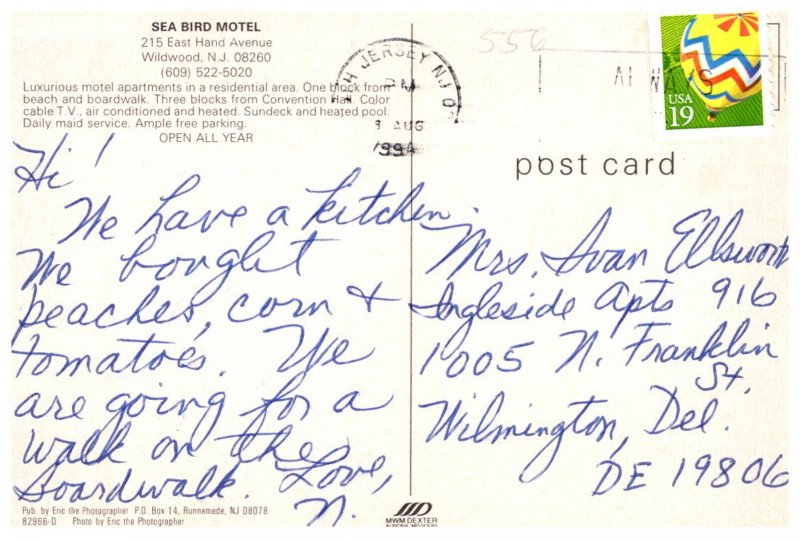 SEA BIRD MOTEL
215 East Hand Avenue
Wildwood, N.J. 08260
(609) 522-5020
Luxurious motel apartments in a residential area. One block from
beach and boardwalk. Three blocks from Convention Hall. Color
cable T.V., air conditioned and heated. Sundeck and heated pool.
Daily maid service. Ample free parking.
OPEN ALL YEAR
Hi!
We have a kitchen.
We bought
peaches, corn +
tomatoes. We
are going for a
walk on the
boardwalk. Love,
N.
Pub. by Eric the Photographer P.O. Box 14, Runnemede, NJ 08078
82966-D Photo by Eric the Photographer
MWM DEXTER
AURORA, MISSOURI
JERSEY NJ
PM
AUG
1994
556
ALWAYS
USA
19
post card
Mrs. Ivan Ellsworth
Ingleside Apts 916
1005 N. Franklin
St.
Wilmington, Del.
DE 19806